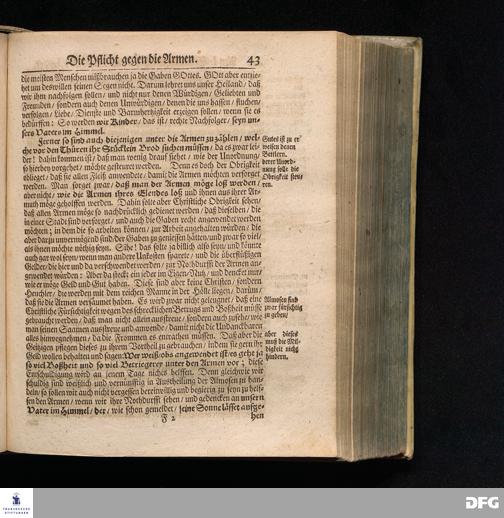 Die Pflicht gegen die Armen. 43
die meisten Menschen mißbrauchen ja die Gaben GOttes. GOtt aber entzie-
het um deswillen seinen Segen nicht. Darum lehret uns unser Heiland/ daß
wir ihm nachfolgen sollen/ und nicht nur denen Würdigen/ Geliebten und
Freunden/ sondern auch denen Unwürdigen/ denen die uns hassen/ fluchen/
verfolgen/ Liebe/ Dienste und Barmherzigkeit erzeigen sollen/ wenn sie es
bedürffen: So werden wir Kinder/ das ist/ rechte Nachfolger/ seyn un-
sers Vaters im Himmel.
Ferner so sind auch diejenigen unter die Armen zu zählen/ wel-
che vor den Thüren ihr Stücklein Brod suchen müssen/ da es zwar bes-
ser! dahin kommen ist/ daß man wenig drauf siehet/ wie der Unordnung/
so hierbey vorgehet/ möchte gesteuret werden. Denn es doch der Obrigkeit
oblieget/ daß sie allen Fleiß anwendete/ damit die Armen möchten versorget
werden. Man sorget zwar/ daß man der Armen möge loß werden/
aber nicht/ wie die Armen ihres Elendes loß und ihnen aus ihrer Ar-
muth möge geholffen werden. Dahin solte aber Christliche Obrigkeit sehen/
daß allen Armen möge so nachdrücklich gedienet werden/ daß dieselben/ die
in einer Stadt sind versorget/ und auch die Gaben recht angewendet werden
möchten; in dem die so arbeiten können/ zur Arbeit angehalten würden/ die
aber darzu unvermögend sind der Gaben zu geniessen hätten/ und zwar so viel/
als ihnen möchte nöthig seyn. Sihe! das solte ja billich also seyn/ und könnte
auch gar wol seyn/ wenn man andere Unkosten sparete/ und die überflüßigen
Gelder/ die hier und da verschwendet werden/ zur Nothdurfft der Armen an-
gewendet würden: Aber da stecket ein jeder im Eigen-Nutz/ und dencket nur/
wie er möge Geld und Gut haben. Diese sind aber keine Christen/ sondern
Heuchler/ die werden mit dem reichen Manne in der Hölle liegen/ darum/
daß sie die Armen versäumet haben. Es wird zwar nicht geleugnet/ daß eine
Christliche Fürsichtigkeit wegen des schrecklichen Betrugs und Boßheit müsse
gebrauchet werden/ daß man nicht allein ausstreue/ sondern auch zusehe/ wie
man seinen Saamen ausstreue und anwende/ damit nicht die Undanckbaren
alles hinwegnehmen/ da die Frommen es entrathen müssen. Daß aber die
Geitzigen pflegen dieses zu ihrem Vortheil zu gebrauchen/ indem sie gern ihr
Geld wollen behalten und sagen: Wer weiß/ obs angewendet ist/ es geht ja
so viel Boßheit und so viel Betriegerey unter den Armen vor; diese
Entschuldigung wird an jenem Tage nichts helffen. Denn gleichwie wir
schuldig sind weißlich und vernünfftig in Austheilung der Almosen zu han-
deln/ so sollen wir auch nicht vergessen bereitwillig und begierig zu seyn zu helf-
fen den Armen/ wenn wir ihre Nothdurfft sehen/ und gedencken an unsern
Vater im Himmel/ der/ wie schon gemeldet/ seine Sonne lässet aufge-
F 2 hen
Gutes ist zu er-
weisen denen
Bettlern.
derer Unord-
nung solle die
Obrigkeit steu-
ren.
Almosen sind
zwar fürsichtig
zu geben/
aber dieses
muß die Mil-
digkeit nicht
hindern.
FRANCKESCHE
STIFTUNGEN
DFG